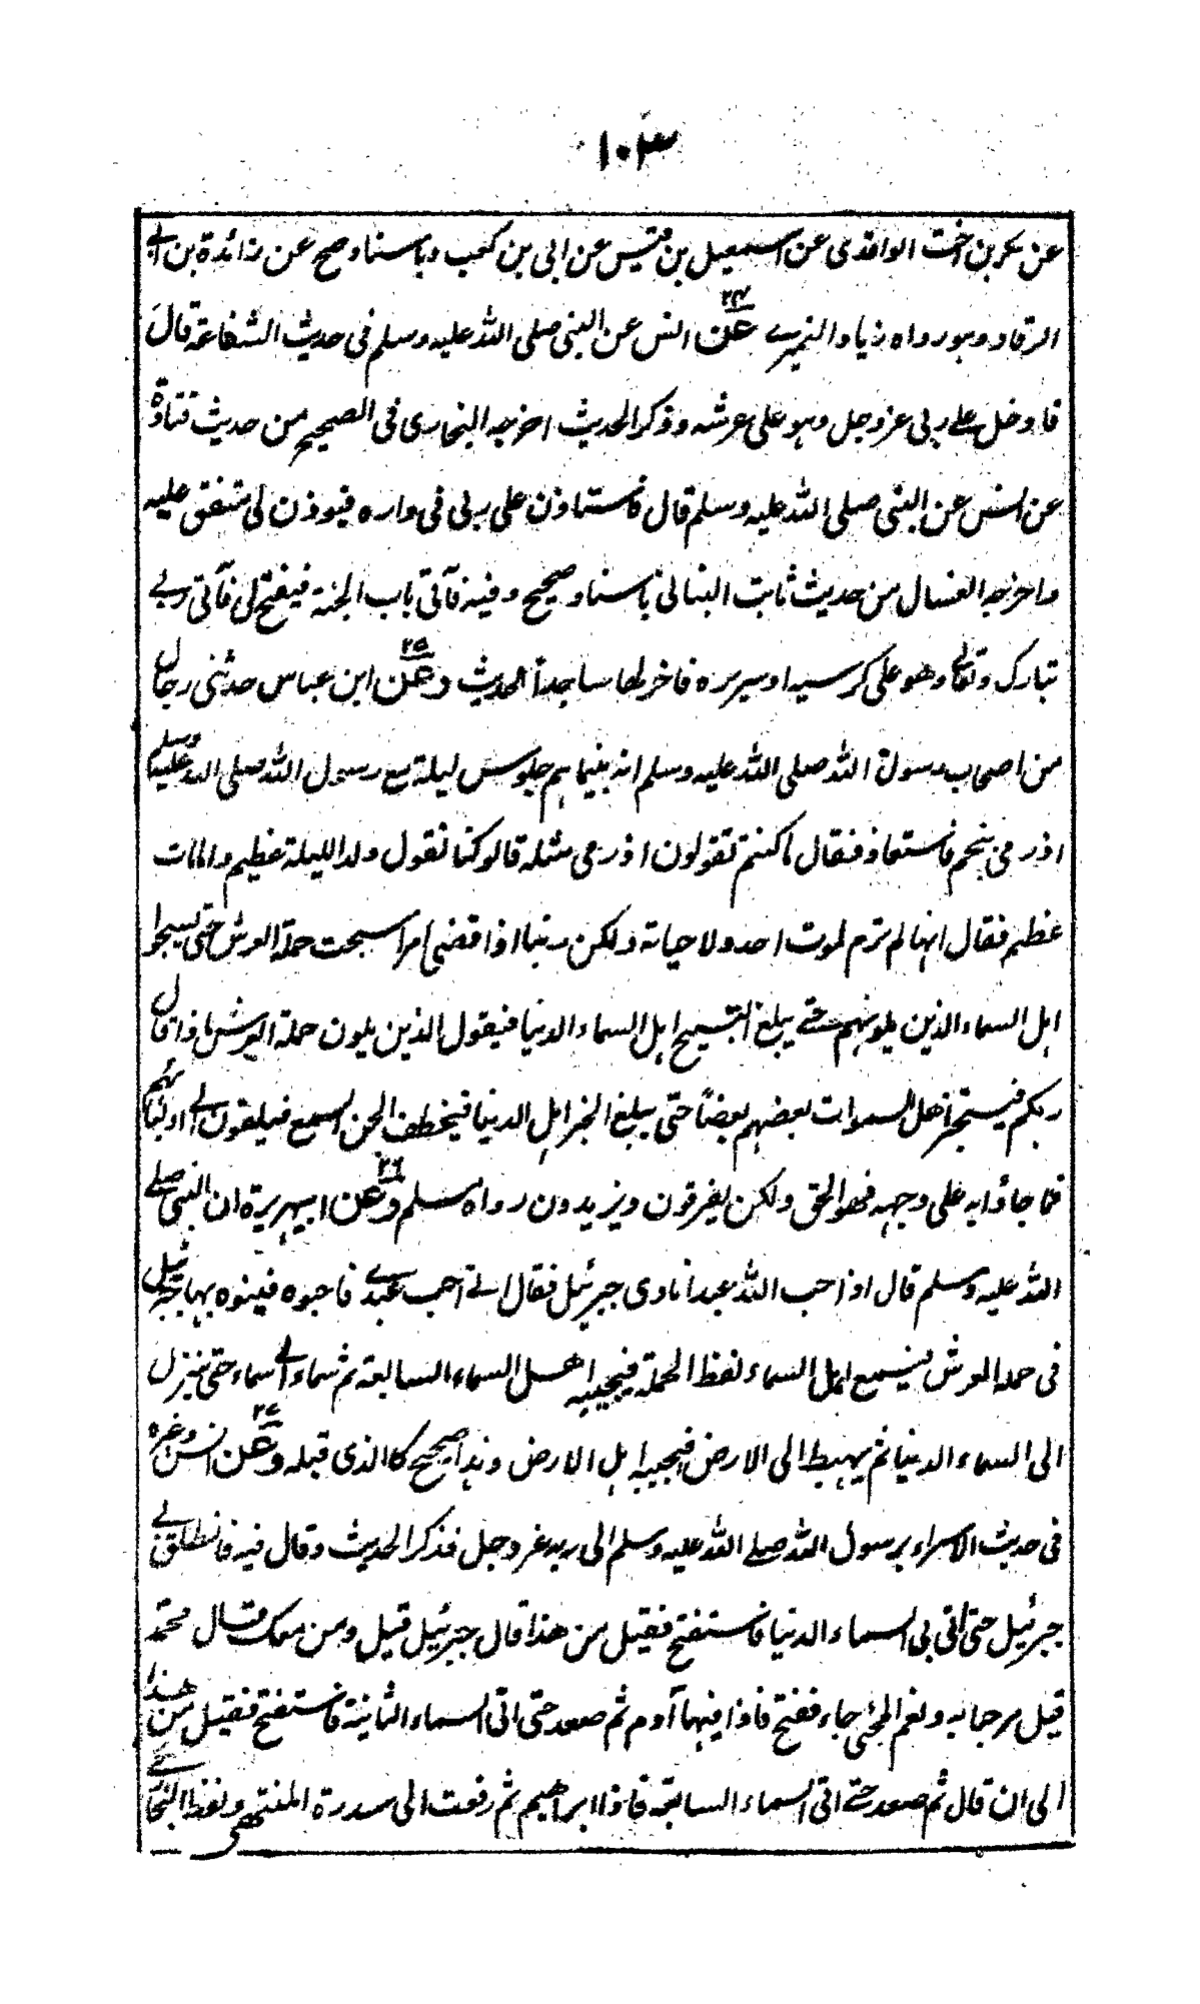 ١٠٣
عن بكر بن اخت الواقدى عن اسمعيل بن قيس عن ابى بن كعب وباسناد صح عن زائدة بن ابے
الرقاد وهو رواه زياد النميرے ٢٤ عن انس عن النبى صلى الله عليه وسلم فى حديث الشفاعة قال
فادخل علے ربى عز وجل وهو على عرشه وذكر الحديث اخرجه البخارى فى الصحيح من حديث قتادة
عن انس عن النبى صلى الله عليه وسلم قال فاستاذن على ربى فى داره فيوذن لى متفق عليه
واخرجه العسال من حديث ثابت البنانى باسناد صحيح وفيه فآتى باب الجنة فيفتح لى فآتى ربے
تبارك وتعالے وهو على كرسيه او سريره فاخر لها ساجداً الحديث ٢٥ وعن ابن عباس حدثنى رجال
من اصحاب رسول الله صلى الله عليه وسلم انه بينما هم جلوس ليلة مع رسول الله صلى الله عليه وسلم
اذ رمى بنجم فاستعاذ فقال ما كنتم تقولون اذ رمى مثله قالو كنا نقول ولد الليلة عظيم وامات
عظيم فقال انها لم ترم لموت احد ولا حياته ولكن ربنا اذا قضى امرا سبحت حملة العرش حتى يسبحوا
اهل السماء الذين يلونهم حتے يبلغ التسبيح اهل السماء الدنيا فيقول الذين يلون حملة العرش ماذا قال
ربكم فيستخبر اهل السموات بعضهم بعضاً حتى يبلغ الخبر اهل الدنيا فيخطف الجن السمع فيلقون الے اوليائهم
فما جاؤا به على وجهه فهو الحق ولكن يفرقون ويزيدون رواه مسلم ٢٦ وعن ابيهريرة ان النبى صلے
الله عليه وسلم قال اذ احب الله عبدا نادى جبرئيل فقال انے احب عبدے فاحبوه فينوه بها جبرئيل
فى حملة العرش فيسمع اهل السماء لفظ الحملة فيحبه اهل السماء السابعة ثم سماء الے سماء حتى ينزل
الى السماء الدنيا ثم يهبط الى الارض فيحبه اهل الارض وهذا صحيح كالذى قبله ٢٧ وعن انس وغيره
فى حديث الاسراء برسول الله صلے الله عليه وسلم الى ربه عز وجل فذكر الحديث وقال فيه فانطلق بے
جبرئيل حتى اتى بى السماء الدنيا فاستفتح فقيل من هذا قال جبرئيل قيل ومن معك قال محمد
قيل مرحبا به ونعم المجئ جاء ففتح فاذا فيها آدم ثم صعد حتى اتى السماء الثانية فاستفتح فقيل من هذا
الى ان قال ثم صعد حتے اتى السماء السابعة فاذا ابراهيم ثم رفعت الى سدرة المنتهى ولفظ البخارے